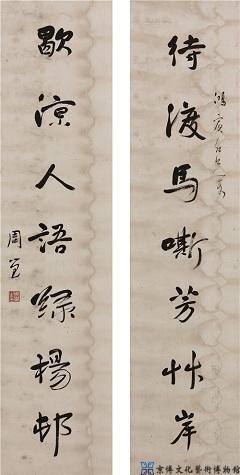 鴻賓仁兄
待渡馬嘶芳艸岸
歇涼人語綠楊邨
周
京博文化藝術博物館